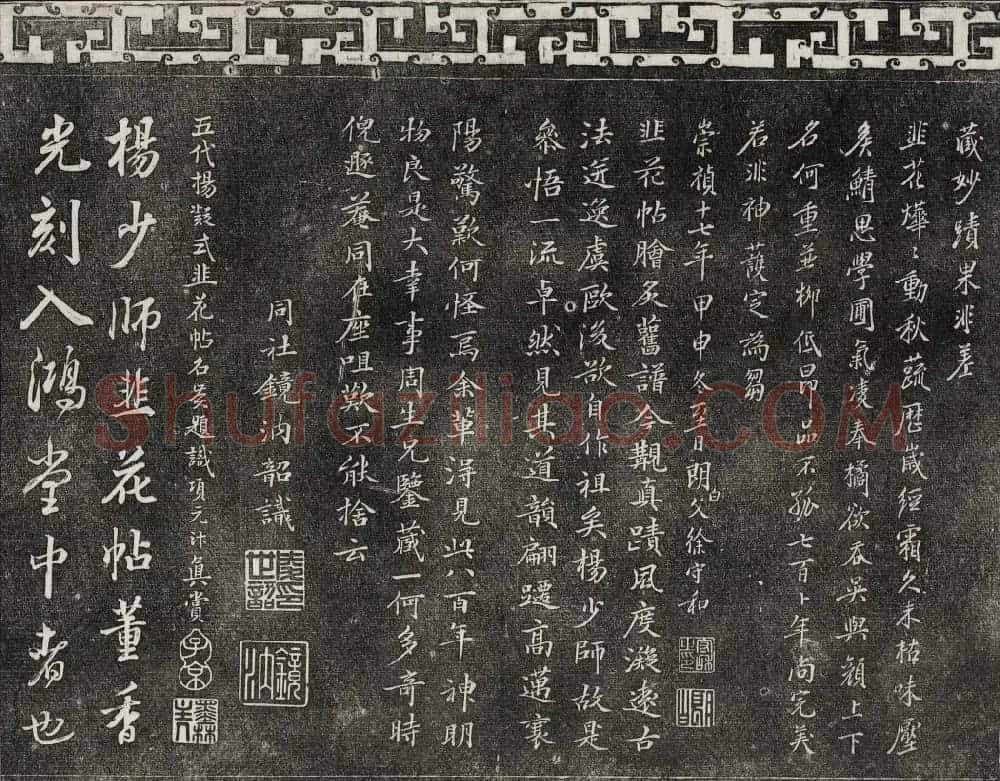 藏妙蹟果非差
韭花燁〻動秋蔬歷歲經霜久未枯味壓
矣鯖思學圃氣凌奉橘欲吞吳與顏上下
名何重並柳低昂品不孤七百卜年尚完美
若非神護定為芻
崇禎十七年甲申冬至日朗白父徐守和
韭花帖膾炙舊譜今覯真蹟風度凝遠古
法迸逸虞歐後欲自作祖矣楊少師故是
參悟一流卓然見其道韻翩躚高邁襄
陽驚歎何怪焉余輩得見此八百年神明
物良是大幸事周生兄鑒藏一何多奇時
倪遯菴同在座咀歎不能捨云
同社鏡汭韶識
五代楊凝式韭花帖名賢題識項元汴真賞
楊少師韭花帖董香
光刻入鴻堂中者也
子京
Shufaziliao.COM